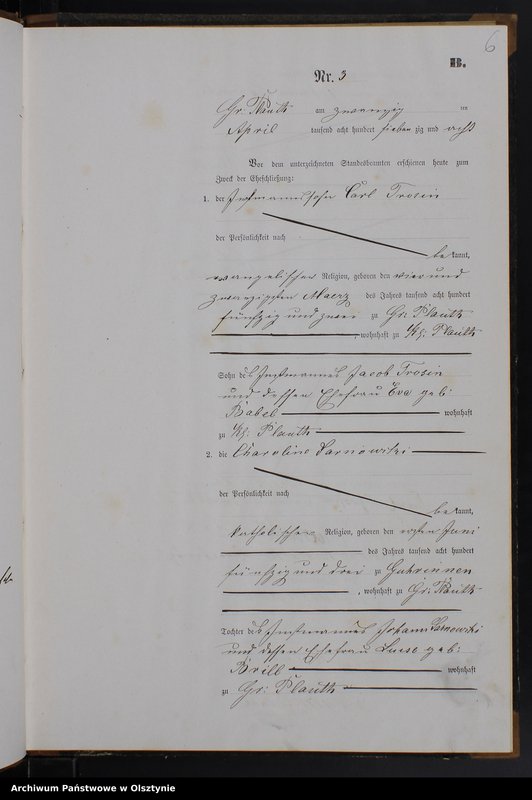 6
B.
Nr. 3
Gr. Plauth am zwanzig ten
April tausend acht hundert sieben zig und acht
Vor dem unterzeichneten Standesbeamten erschienen heute zum
Zweck der Eheschließung:
1. der Instmannssohn Carl Trosin
der Persönlichkeit nach
be kannt,
evangelischer Religion, geboren den vier und
zwanzigsten Maerz des Jahres tausend acht hundert
fünfzig und zwei zu Gr: Plauth
, wohnhaft zu Kl: Plauth
Sohn des Instmannes Jacob Trosin
und dessen Ehefrau Eva geb:
Babel wohnhaft
zu Kl: Plauth
2. die Charoline Sarnowski
der Persönlichkeit nach
be kannt,
katholischer Religion, geboren den ersten Juni
des Jahres tausend acht hundert
fünfzig und drei zu Guhrinnen
, wohnhaft zu Gr: Plauth
Tochter des Instmannes Johann Sarnowski
und dessen Ehefrau Luise geb:
Brill wohnhaft
zu Gr: Plauth
Archiwum Państwowe w Olsztynie